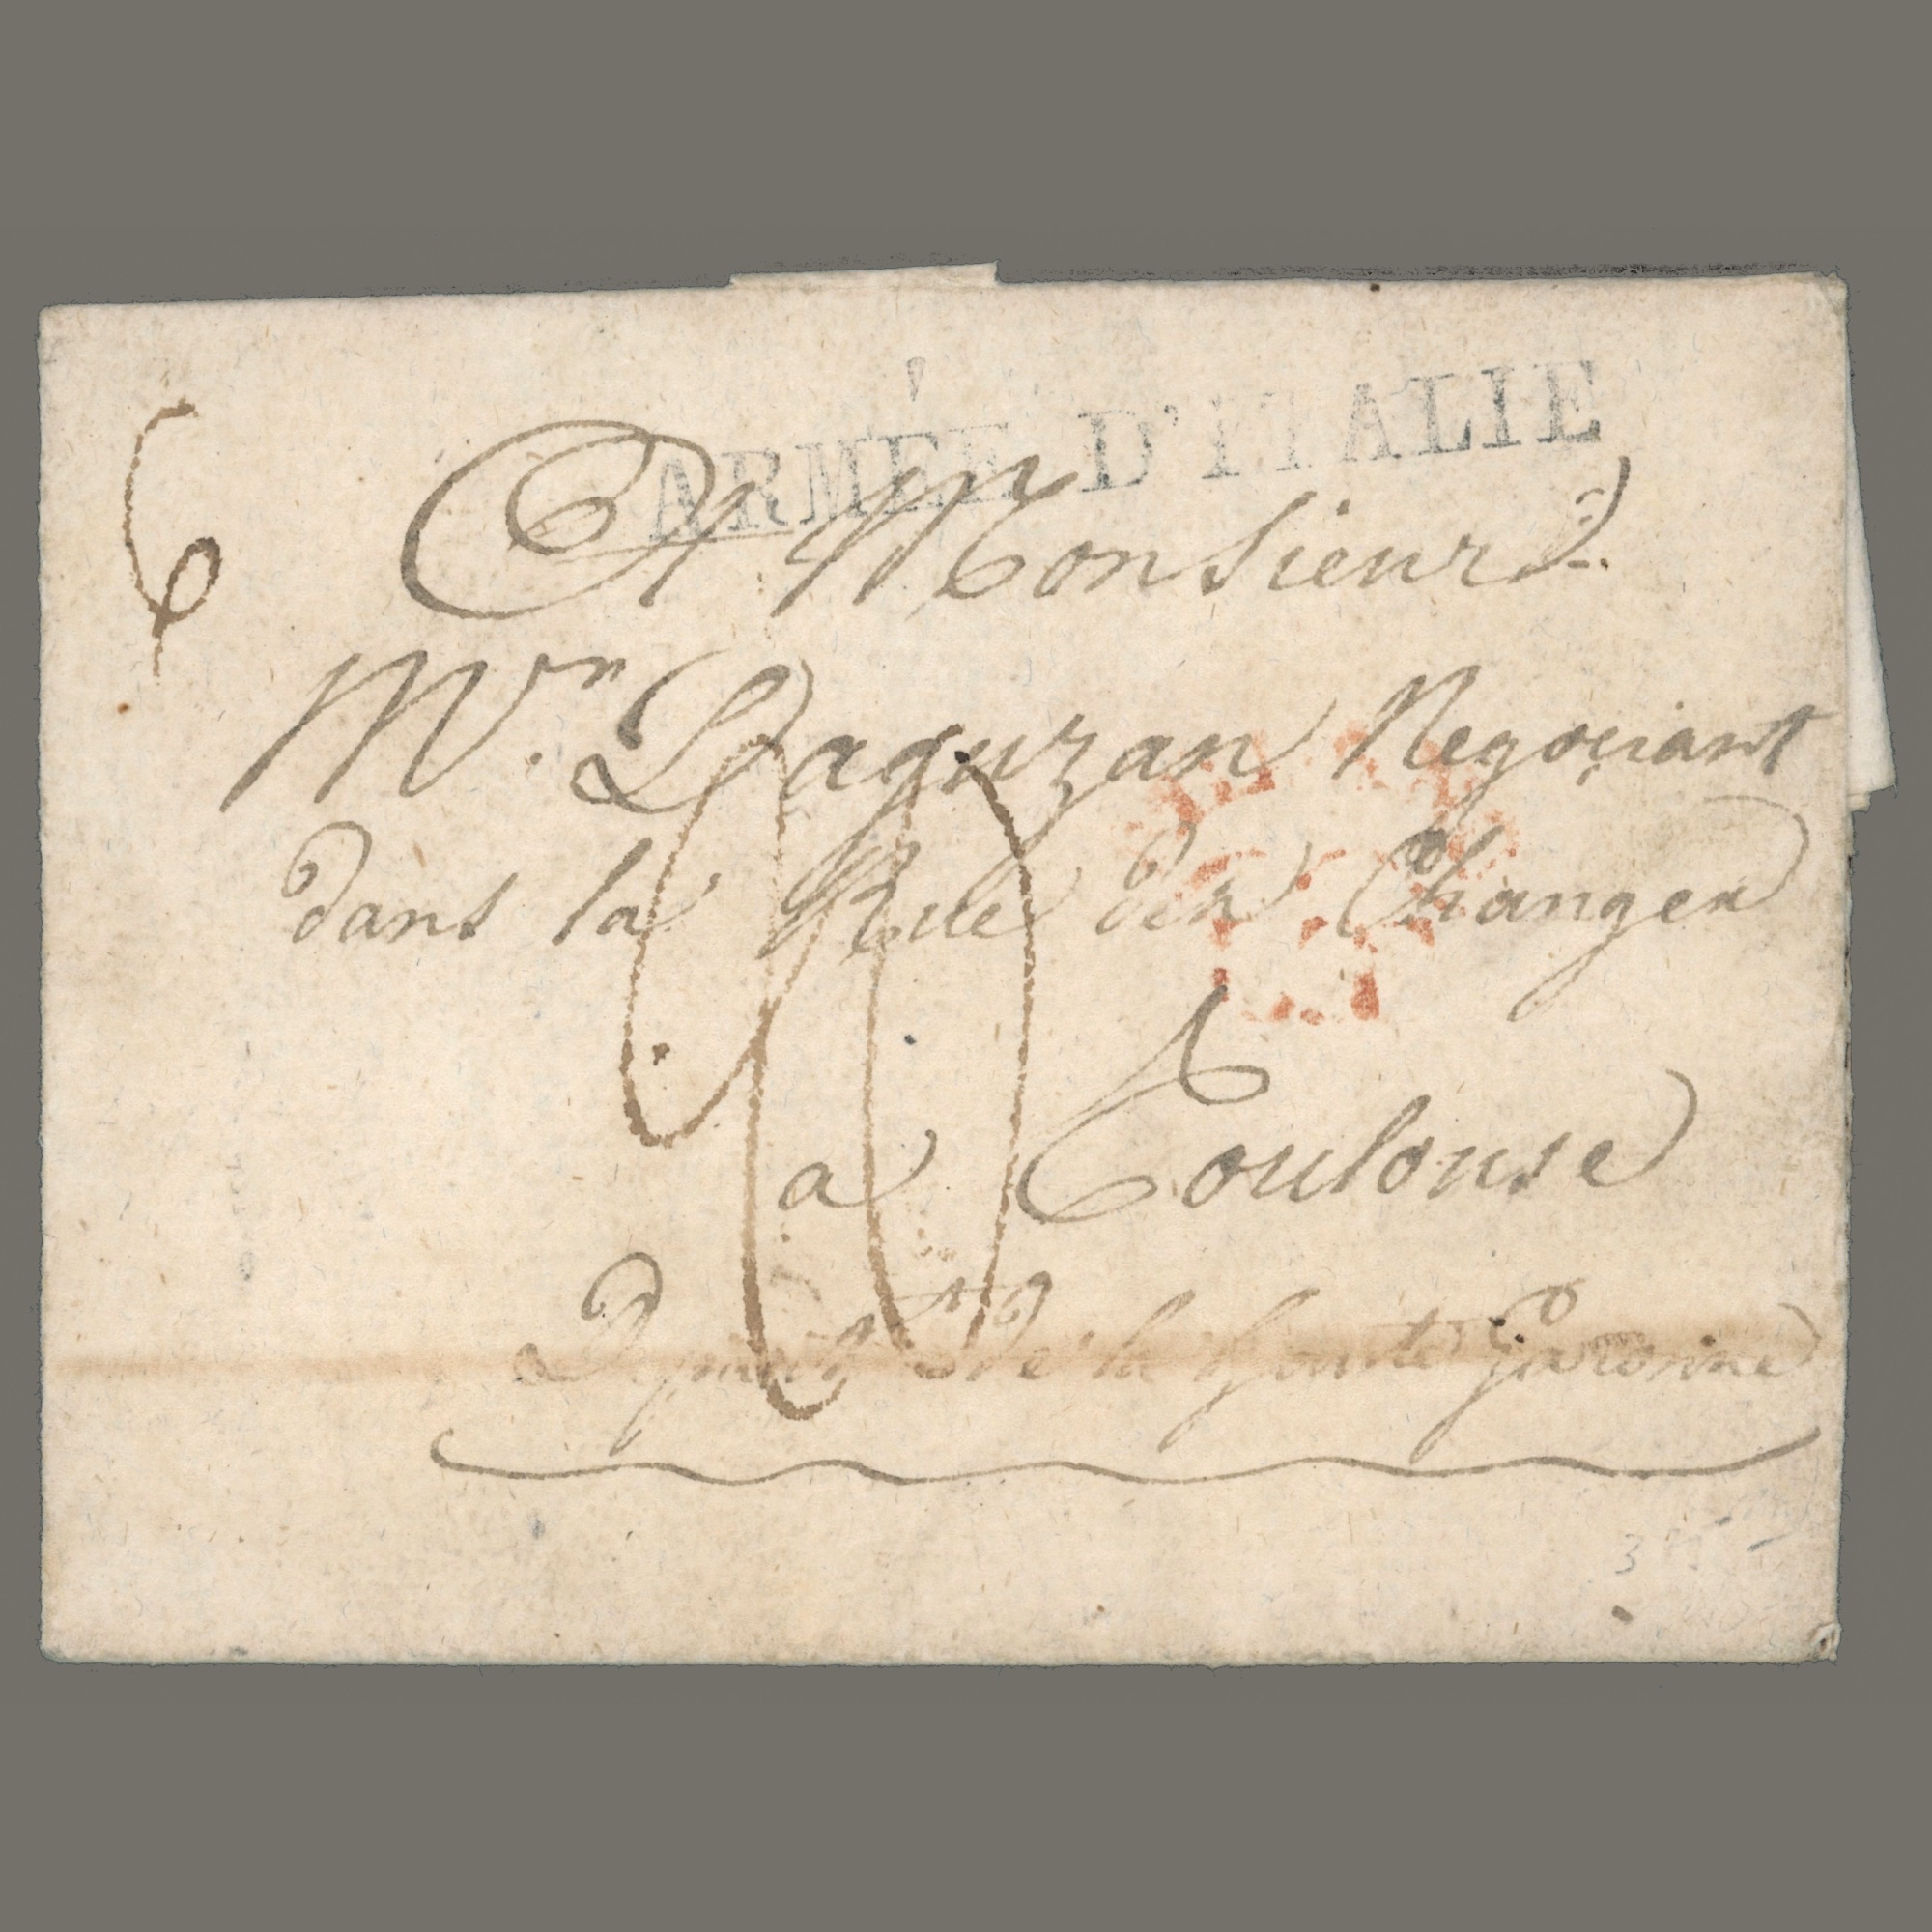 ARMÉE D'ITALIE
6
A Monsieur
Mr. Daguzan Negociant
dans la Rue des Changes
a Toulouse
de la haute Garonne
3